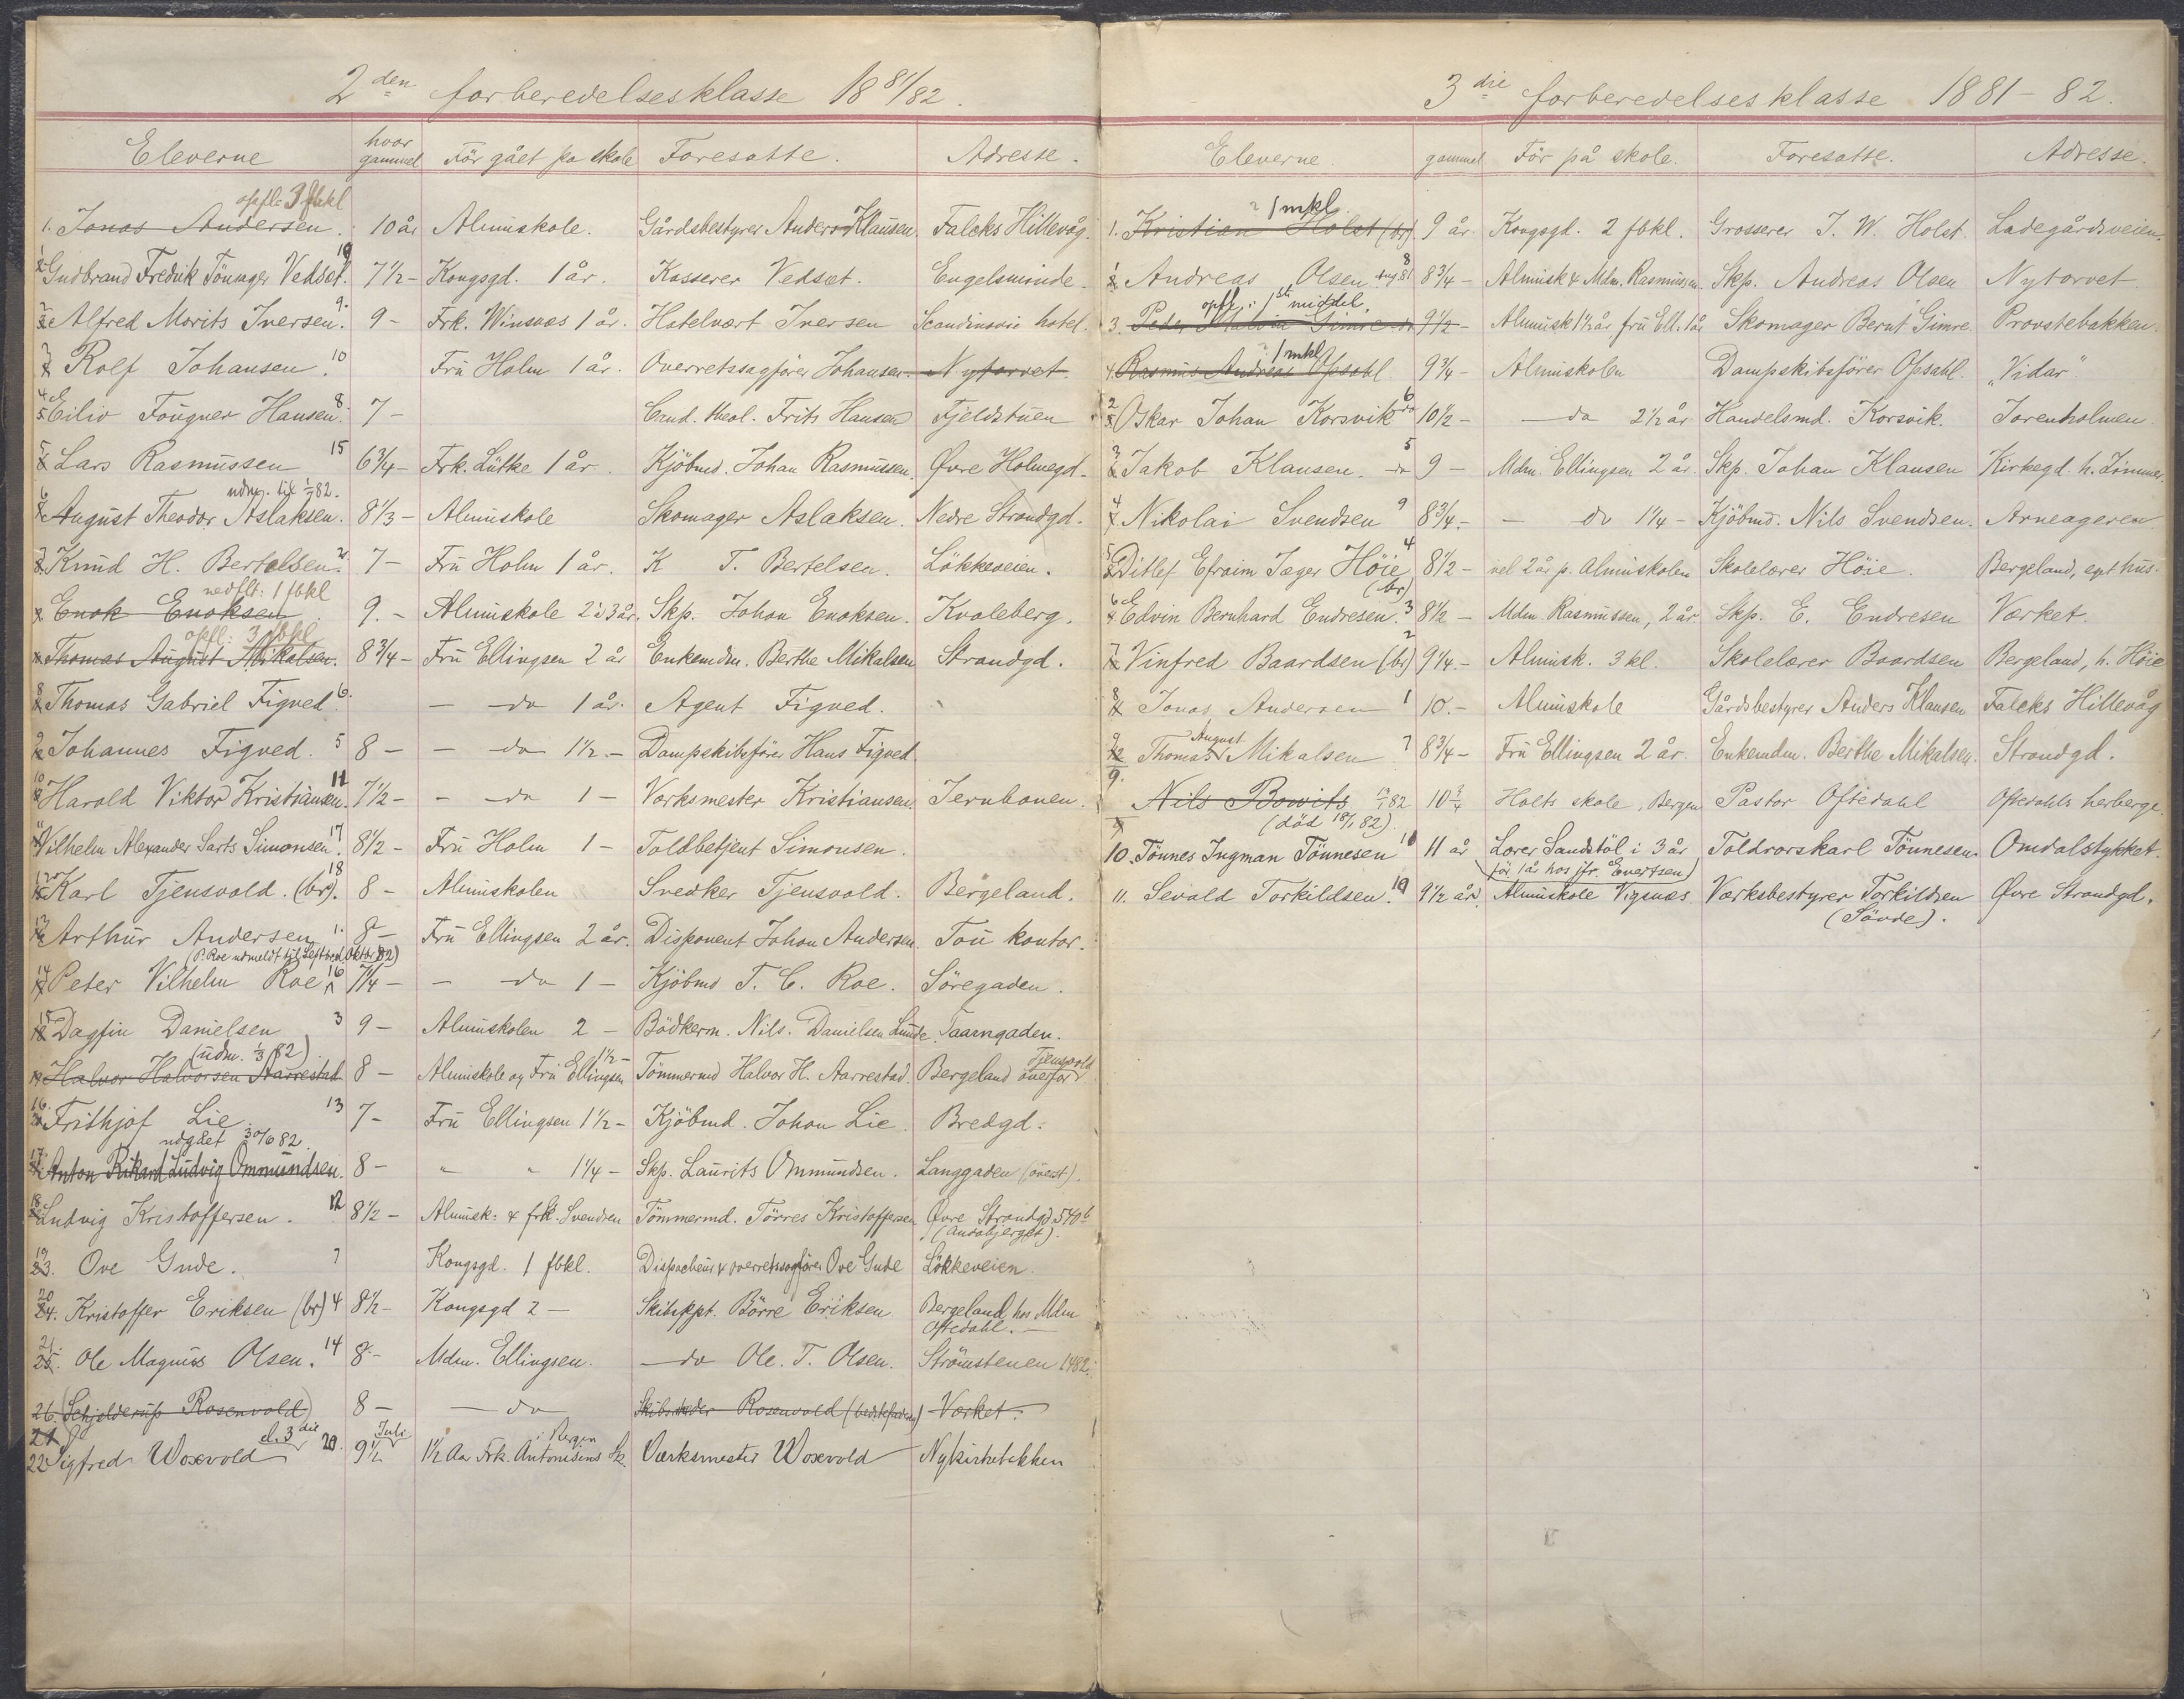 2den forberedelsesklasse 1881/82.
Eleverne hvor gammel Før gået på skole Foresatte. Adresse.
opfl. 3 fbkl
1. Jonas Andersen. 10 år Almuskole. Gårdsbestyrer Anders Klausen. Falcks Hillevåg.
Gudbrand Fredrik Tönsager Vedset. 19 7 1/2 - Kongsgd. 1 år. Kasserer Vedset. Engelsminde.
Alfred Morits Iversen. 9. 9 - Frk. Winsnæs 1 år. Hotelvært Iversen Scandinavie hotel.
Rolf Johansen. 10 Fru Holm 1 år. Overretssagfører Johansen. Nytorvet.
4 Eiliv Fougner Hansen. 8 7 - Cand. theol. Frits Hansen Fjeldstuen
5 Lars Rasmussen 15 6 3/4 - Frk. Lütke 1 år. Kjöbmd. Johan Rasmussen. Øvre Holmegd.
udm. til 1/7 82.
6 August Theodor Aslaksen. 8 1/3 - Almuskole Skomager Aslaksen. Nedre Strandgd.
7 Knud H. Bertelsen. 2 7 - Fru Holm 1 år. K T. Bertelsen. Lökkeveien.
nedflt. 1 fbkl
Enok Enoksen 9. - Almuskole 2 à 3 år. Skp. Johan Enoksen. Kvaleberg.
opfl. 3 fbkl
Thomas August Mikalsen. 8 3/4 - Fru Ellingsen 2 år Enkemdm. Berthe Mikalsen Strandgd.
8 Thomas Gabriel Figved 6. - do 1 år. Agent Figved.
9 Johannes Figved. 5 8 - - do 1 1/2 - Dampskibsfører Hans Figved.
10 Harald Viktor Kristiansen. 11 7 1/2 - - do 1 - Værksmester Kristiansen Jernbanen.
11 Vilhelm Alexander Sarts Simonsen. 17 8 1/2 - Fru Holm 1 - Toldbetjent Simonsen.
12 Karl Tjensvold. (br). 18 8 - Almuskolen Svedker Tjensvold. Bergeland.
13 Arthur Andersen 1. 8 - Fru Ellingsen 2 år. Disponent Johan Andersen. Tou kontor.
(P. Roe udmeldt til Septbr. Oktbr. 82)
14 Peter Vilhelm Roe 16 7 1/4 - - do 1 - Kjöbmd T. C. Roe. Söregaden.
15 Dagfin Danielsen 3 9 - Almuskolen 2 - Bödkerm. Nils. Danielsen Lunde. Taarngaden.
(udm. 1/3 82) 1 1/2 - Tjensvold
19 Halvor Halvorsen Aarrestad 8 - Almuskole og Fru Ellingsen Tömmermd Halvor H. Aarrestad. Bergeland overfor
16. Frithjof Lie 13 7 - Fru Ellingsen 1 1/2 - Kjöbmd. Johan Lie. Bredgd.
udgået 30/6 82.
17. Anton Rikard Ludvig Ommundsen. 8 - " " 1 1/4 - Skp. Laurits Ommundsen. Langgaden (överst).
18 Ludvig Kristoffersen. 12 8 1/2 - Almusk: & frk. Svendsen Tömmermd. Törres Kristoffersen Øvre Strandgd. 540 b
(Andabjerget).
19 23. Ove Gude. 7 Kongsgd. 1 fbkl. Dispacheur & overretssagfører Ove Gude Lökkeveien.
20 24. Kristoffer Eriksen (br) 4 8 1/2 - Kongsgd 2 - Skibskpt. Börre Eriksen Bergeland, hos Mdm Oftedahl.
21. 25. Ole Magnus Olsen. 14 8 - Mdm. Ellingsen. - do Ole. T. Olsen. Strömstenen 1482.
26. (Schjelderup Rosenvold) 8 - - do Skibsreder Rosenvold (bedstefaderen) Værket.
d. 3die Juli i Bergen
22 Sigfred Woxvold 20. 9 1/2 1 1/2 Aar Frk. Antonisens Sk. Værksmester Woxvold Nykirkebakken
3die forberedelsesklasse 1881-82.
Eleverne gammel Før på skole. Foresatte. Adresse.
1 mkl
1. Kristian Holst (br) 9 år Kongsgd. 2 fbkl. Grosserer J. W. Holst. Ladegårdsveien.
1 Andreas Olsen 8 aug. 81 8 3/4 - Almusk & Mdm. Rasmussen. Skp. Andreas Olsen Nytorvet
opfl. i 1ste middel.
3. Peder Gimre 9 1/2 - Almusk 1 1/2 år fru Ell. 1 år Skomager Bernt Gimre. Provstebakken.
1 mkl
4. Rasmus Andreas Opsahl 9 3/4 - Almuskolen Dampskibsfører Opsahl. "Vidar"
2 Oskar Johan Korsvik 6 do 10 1/2 - - do 2 1/2 år Handelsmd. Korsvik. Jorenholmen
3 Jakob Klausen. 5 do 9 - Mdm. Ellingsen 2 år. Skp. Johan Klausen Kirkegd. h. Zimmer.
4 Nikolai Svendsen 9 8 3/4. - - do 1 1/4 - Kjöbmd. Nils Svendsen. Arneageren
5 Ditlef Efraim Jæger Höie (br) 4 8 1/2 - vel 2 år p. Almuskolen Skolelærer Höie. Bergeland, eget hus.
6 Edvin Bernhard Endresen. 3 8 1/2 - Mdm. Rasmussen, 2 år Skp. E. Endresen Værket.
7 Vinfred Baardsen (br) 2 9 1/4. - Almusk. 3 kl. Skolelærer Baardsen Bergeland, h. Höie
8 Jonas Andersen 1 10. - Almuskole Gårdsbestyrer Anders Klausen Falcks Hillevåg
9 Thomas August Mikalsen 7 8 3/4 - Fru Ellingsen 2 år. Enkemdm. Berthe Mikalsen. Strandgd.
9. Nils Bowits 82 10 3/4 Holts skole, Bergen Pastor Oftedahl Oftedahls herberge.
(död 18/1 82)
10. Tönnes Ingman Tönnesen 10 11 år Lærer Sandstöl i 3 år Toldrorskarl Tönnesen. Omdalstykket.
för 1 år hos jfr. Evertsen)
11. Sevald Torkildsen. 19 9 1/2 år. Almuskole Vigsnæs Værksbestyrer Torkildsen Øvre Strandgd.
(Sövde).